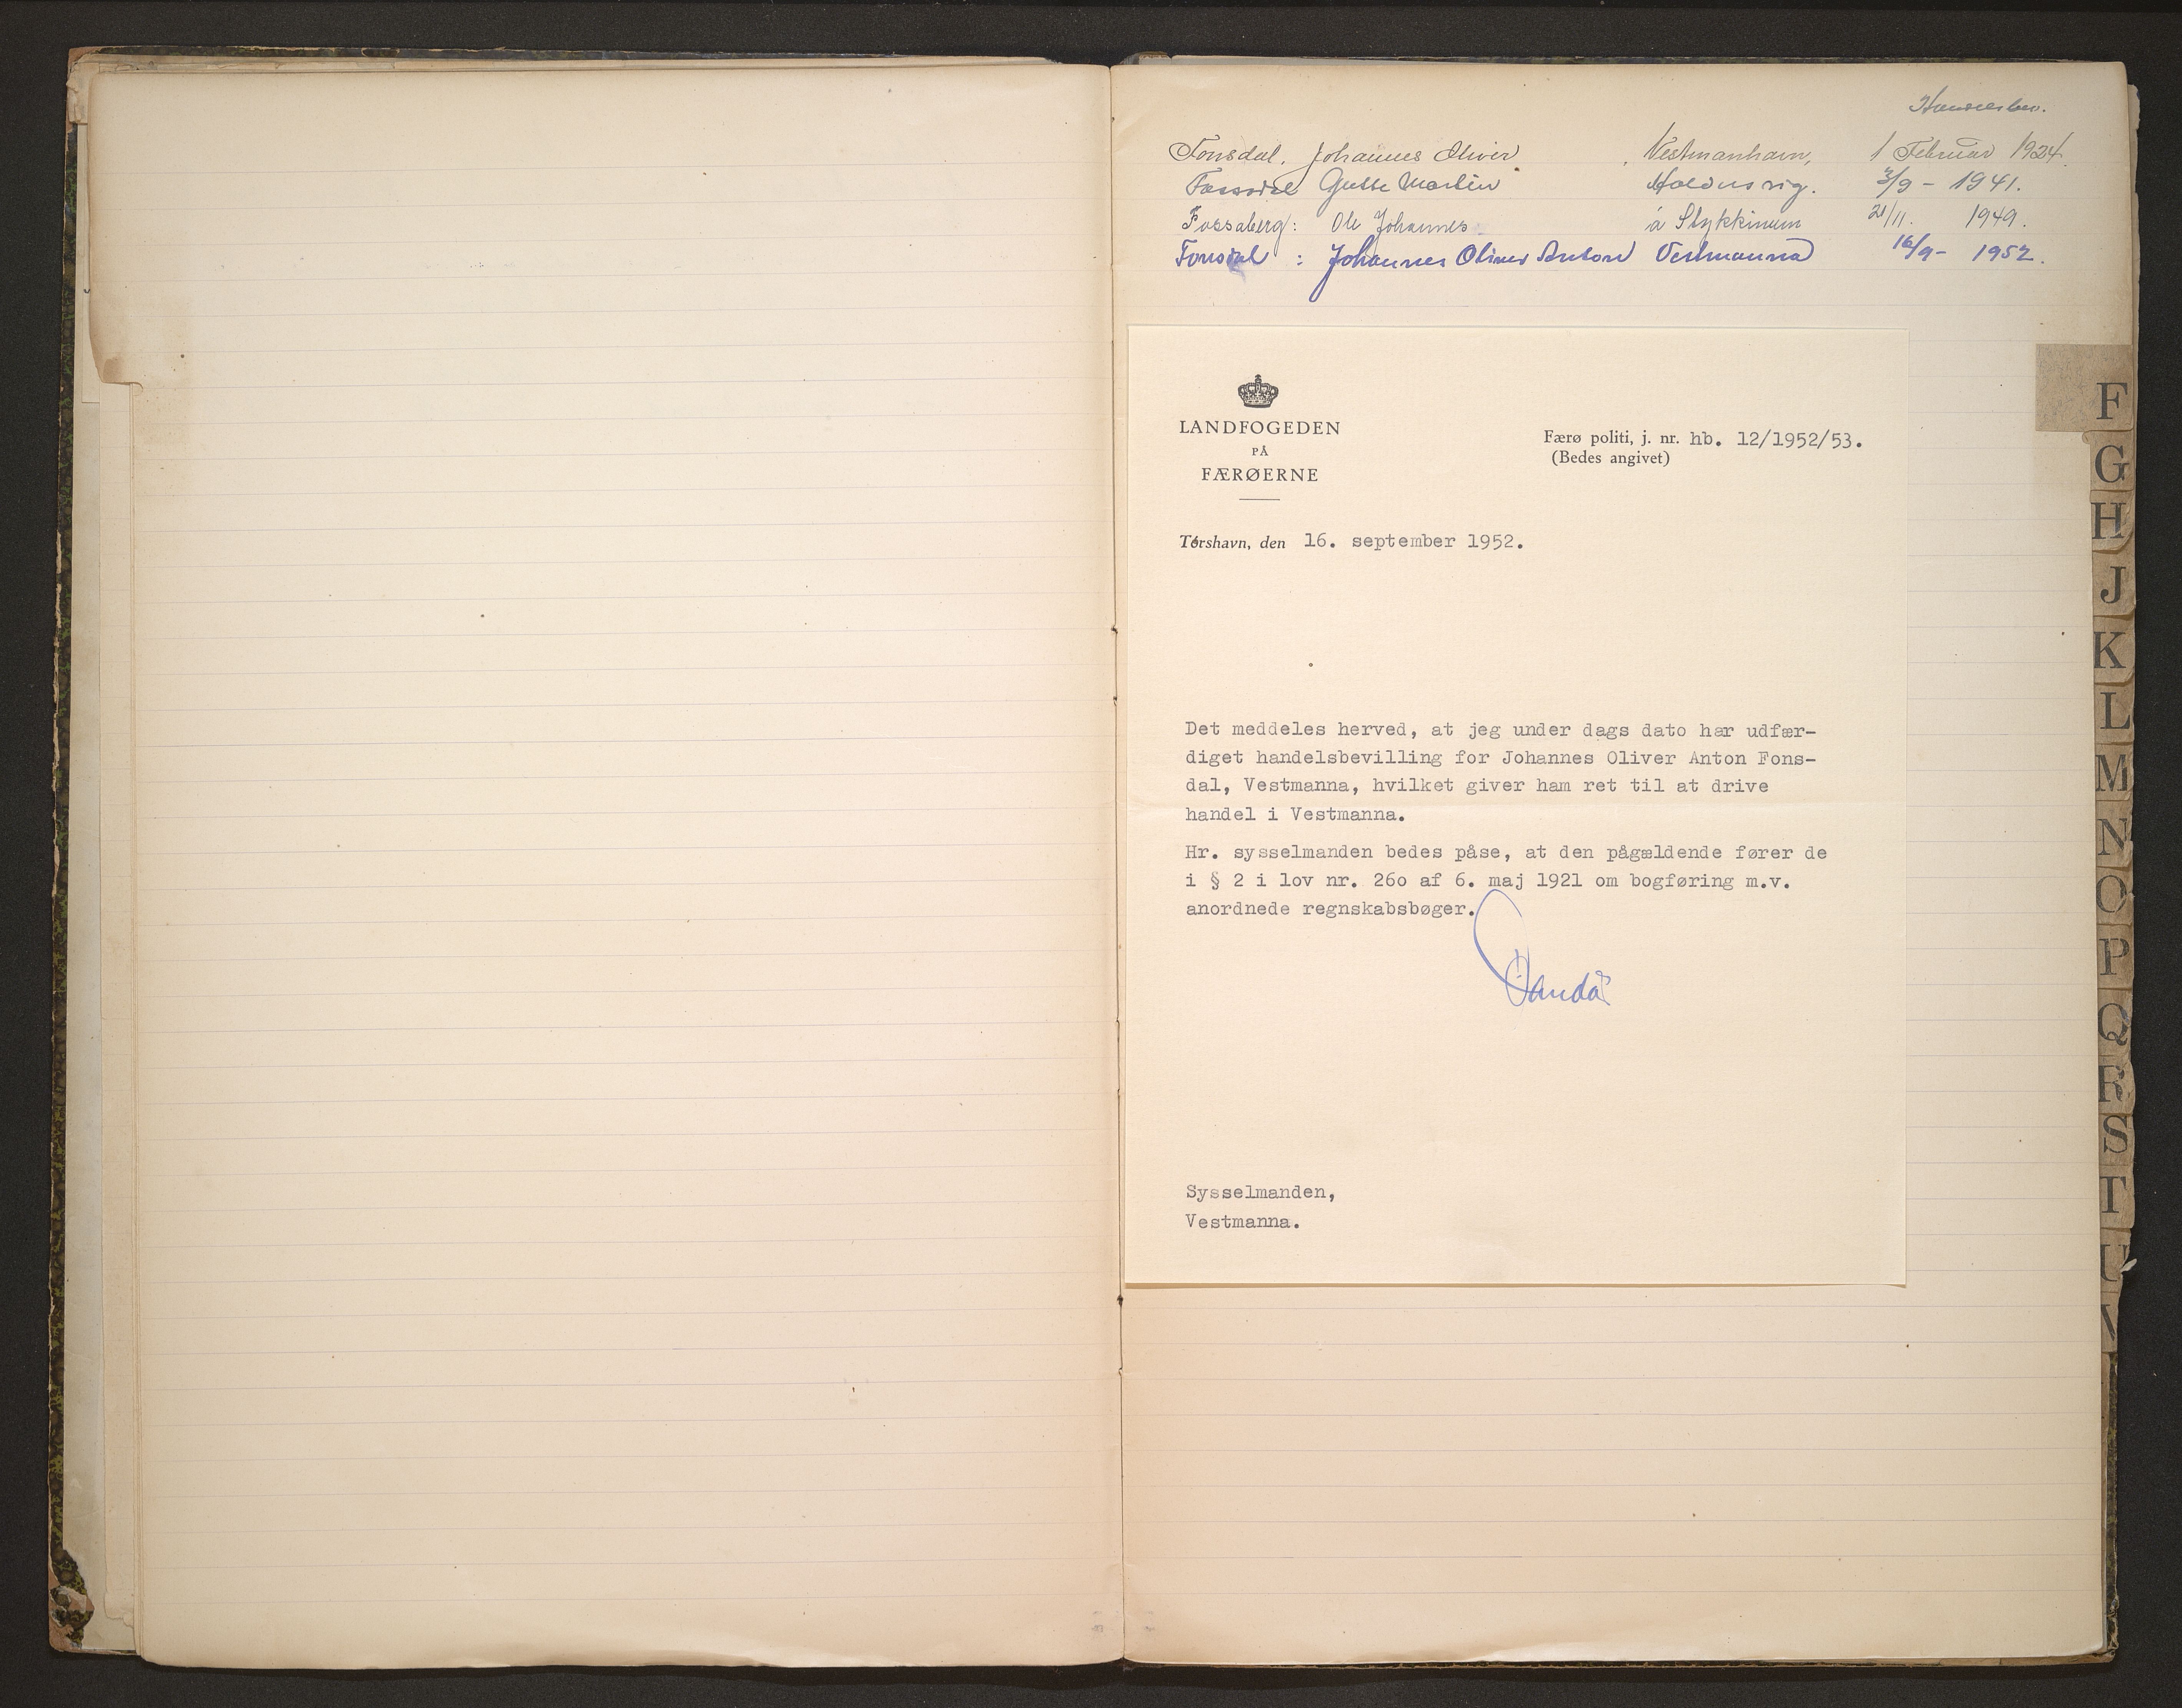 Fonsdal, Johannes Oliver, Vestmanhavn, 1 Februar 1924.
Fossdal Gutte Martin Haldarsvig. 3/9 - 1941.
Fossaberg: Ole Johannes á Stykkinum 21/11. 1949.
Fonsdal : Johannes Oliver Anton Vestmanna 16/9 - 1952.
LANDFOGEDEN
PÅ
FÆRØERNE
Færø politi, j. nr. hb. 12/1952/53.
(Bedes angivet)
Tórshavn, den 16. september 1952.
Det meddeles herved, at jeg under dags dato har udfær-
diget handelsbevilling for Johannes Oliver Anton Fons-
dal, Vestmanna, hvilket giver ham ret til at drive
handel i Vestmanna.
Hr. sysselmanden bedes påse, at den pågældende fører de
i § 2 i lov nr. 26o af 6. maj 1921 om bogføring m.v.
anordnede regnskabsbøger.
Sysselmanden,
Vestmanna.
F
G
H
J
K
L
M
N
O
P
Q
R
S
T
U